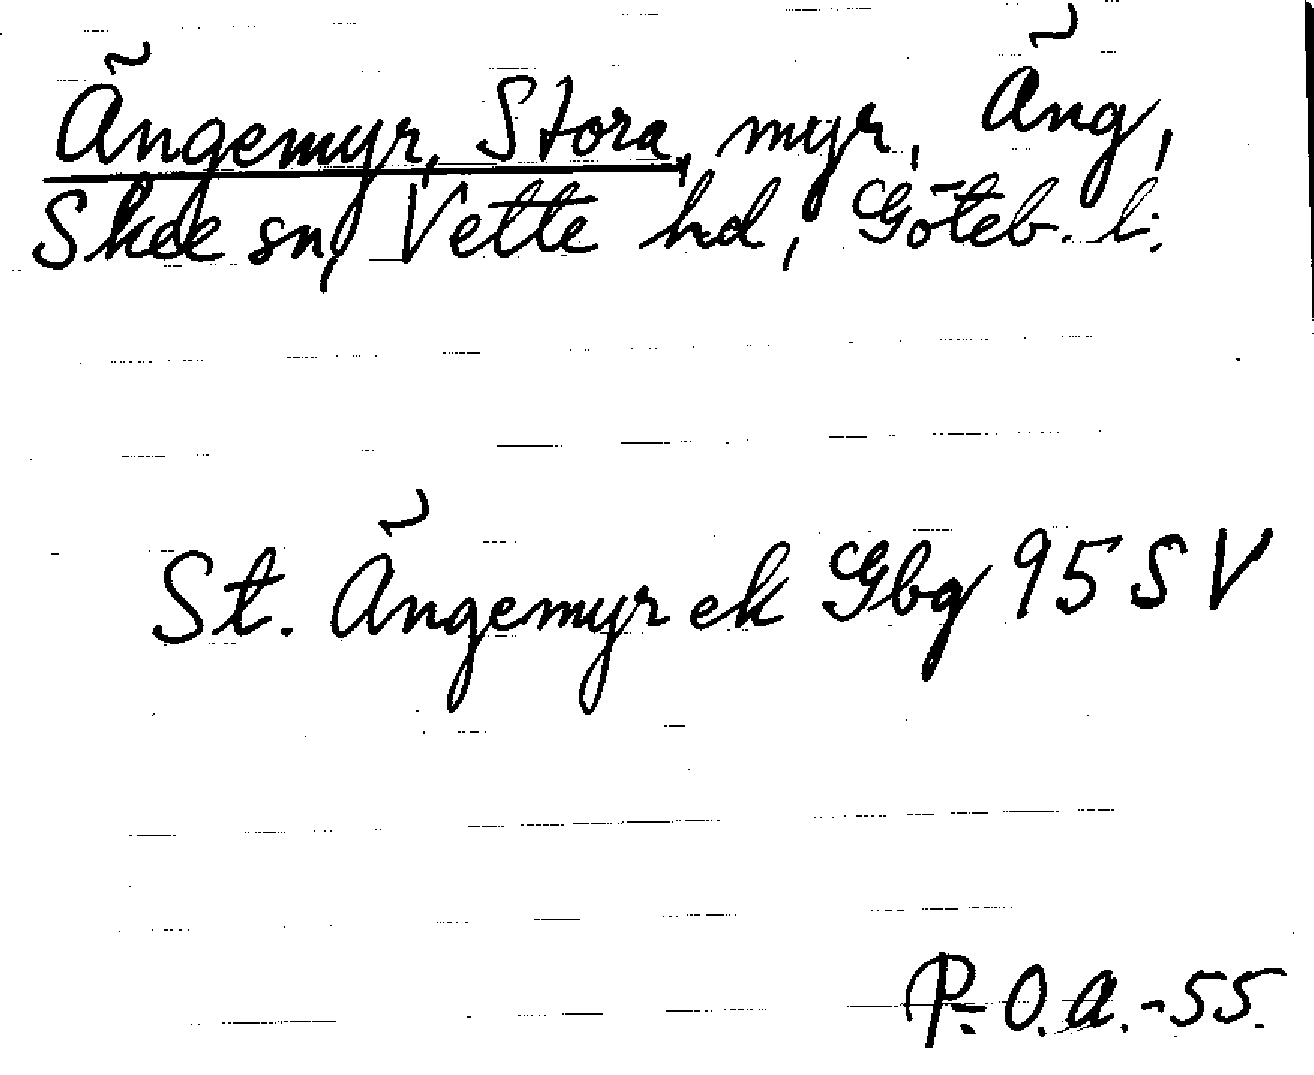 Ängemyr, Stora, myr, Äng,
Skee sn, Vette hd, Göteb. l.
St. Ängemyr ek Gbg 95 SV
P.-O.A.-55.